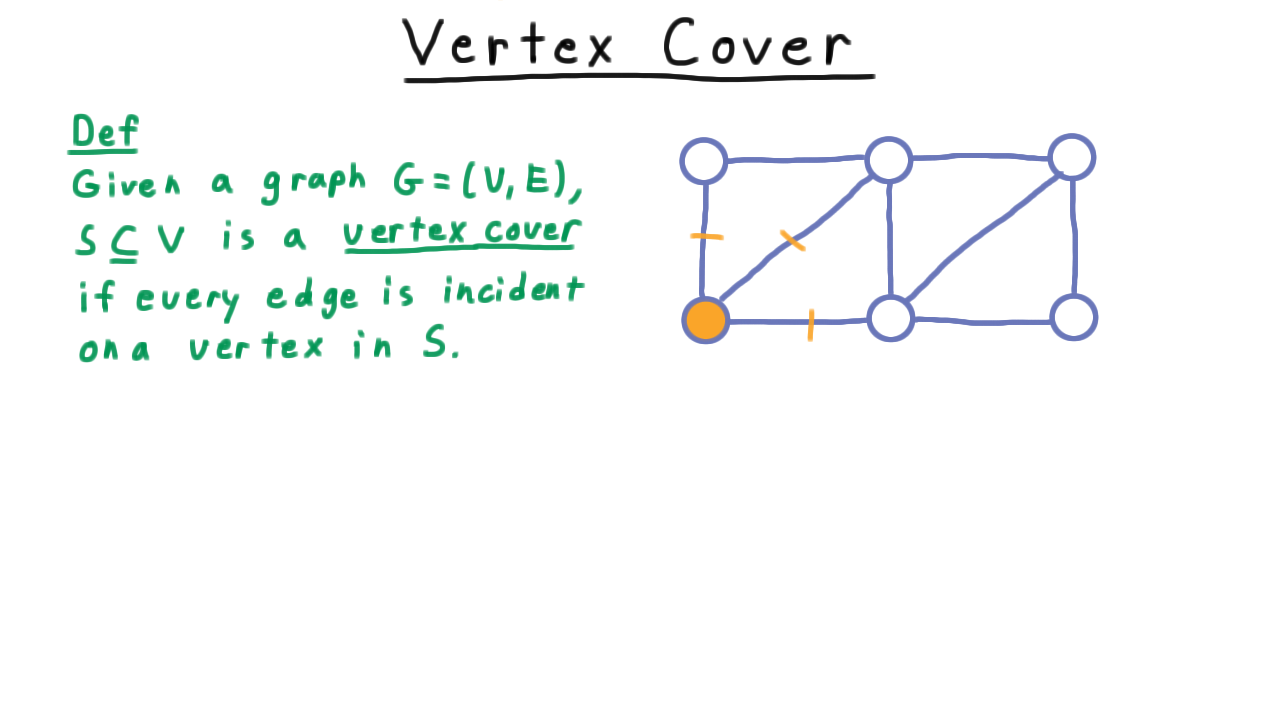 Vertex Cover
Def
Given a graph G=(V,E),
S ⊆ V is a vertex cover
if every edge is incident
on a vertex in S.